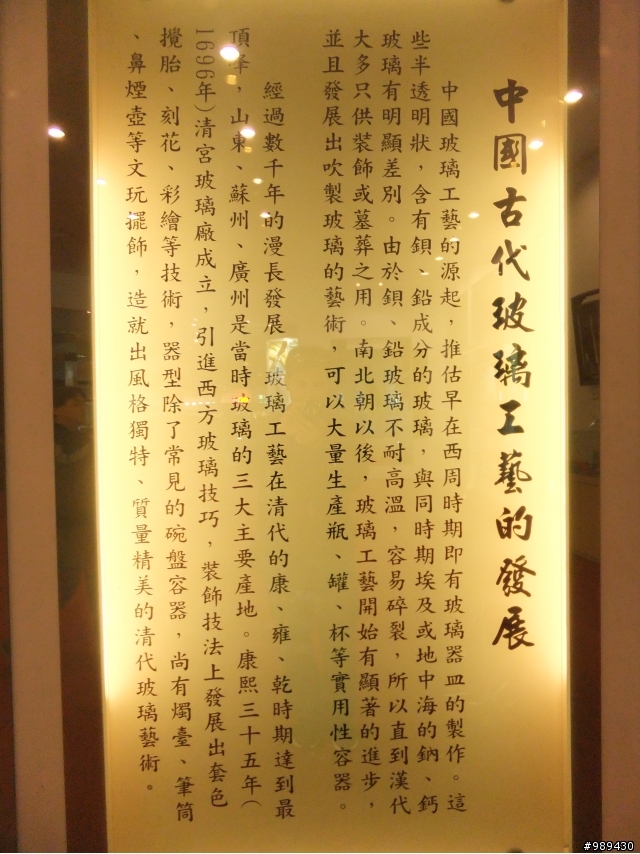 中國古代玻璃工藝的發展
中國玻璃工藝的源起，推估早在西周時期即有玻璃器皿的製作。這
些半透明狀，含有鋇、鉛成分的玻璃，與同時期埃及或地中海的鈉、鈣
玻璃有明顯差別。由於鋇、鉛玻璃不耐高溫，容易碎裂，所以直到漢代
大多只供裝飾或墓葬之用。南北朝以後，玻璃工藝開始有顯著的進步，
並且發展出吹製玻璃的藝術，可以大量生產瓶、罐、杯等實用性容器。
經過數千年的漫長發展，玻璃工藝在清代的康、雍、乾時期達到最
頂峰，山東、蘇州、廣州是當時玻璃的三大主要產地。康熙三十五年（
1696年）清宮玻璃廠成立，引進西方玻璃技巧，裝飾技法上發展出套色
攪胎、刻花、彩繪等技術，器型除了常見的碗盤容器，尚有燭臺、筆筒
、鼻煙壺等文玩擺飾，造就出風格獨特、質量精美的清代玻璃藝術。
#989430